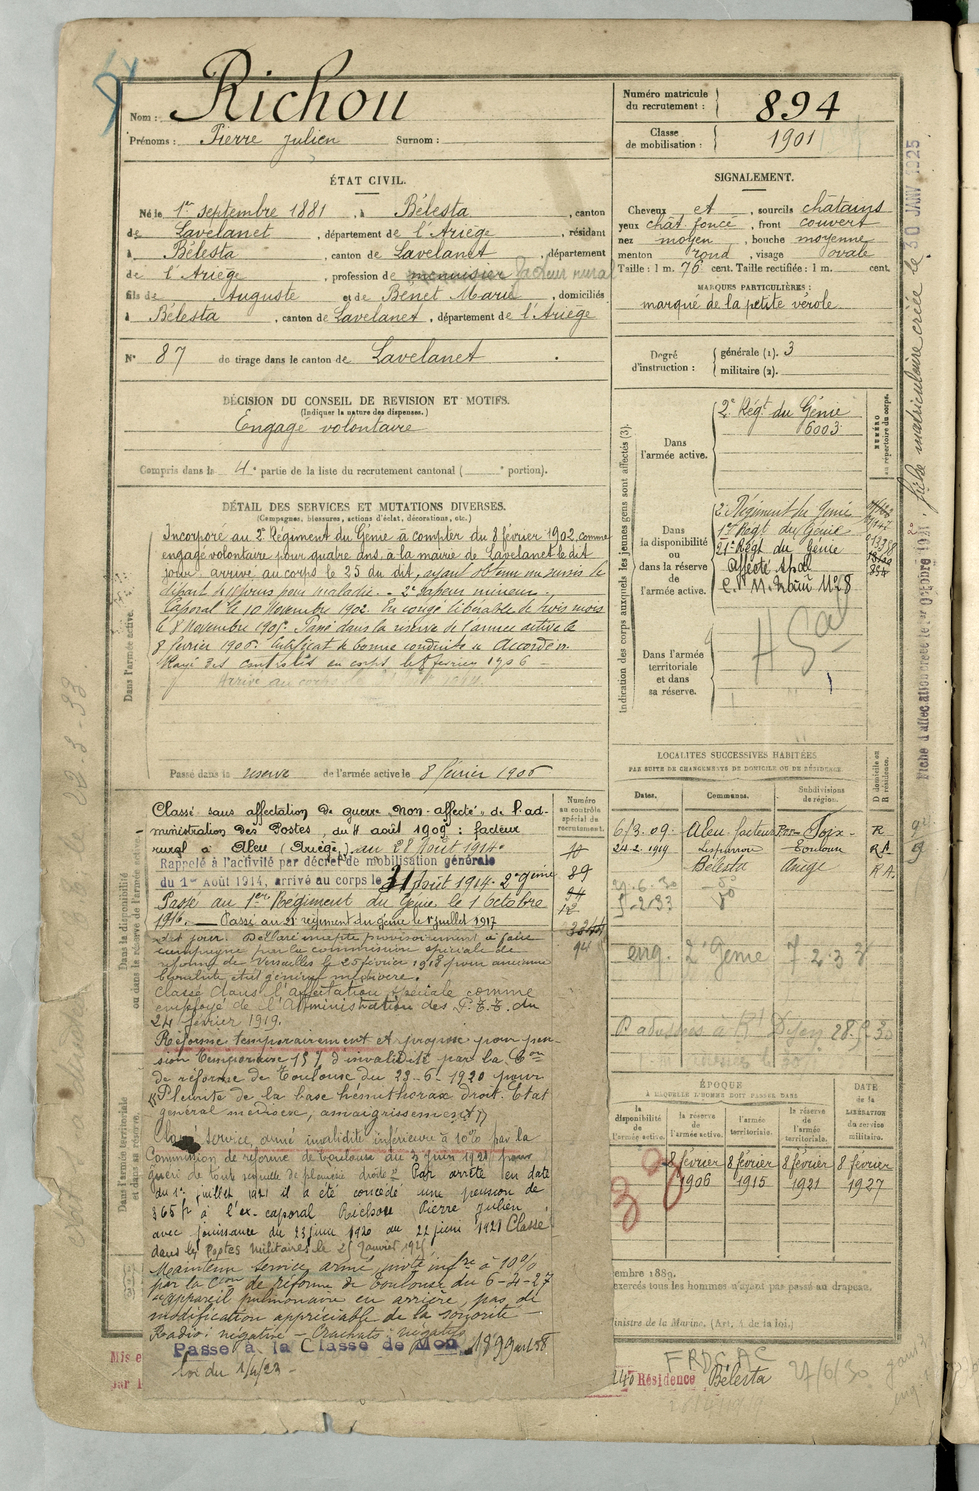 Nom : Richou
Prénoms : Pierre Julien Surnom :
Numéro matricule du recrutement : 894
Classe de mobilisation : 1901
ÉTAT CIVIL.
Né le 1er septembre 1881, à Bélesta, canton
de Lavelanet, département de l'Ariège, résidant
à Bélesta, canton de Lavelanet, département
de l'Ariège, profession de menuisier facteur rural
fils de Auguste et de Benet Marie, domiciliés
à Bélesta, canton de Lavelanet, département de l'Ariège
N° 87 de tirage dans le canton de Lavelanet
SIGNALEMENT.
Cheveux et, sourcils châtains
yeux chât foncé, front couvert
nez moyen, bouche moyenne
menton rond, visage ovale
Taille : 1 m. 76 cent. Taille rectifiée : 1 m. cent.
MARQUES PARTICULIÈRES :
marqué de la petite vérole
Degré d'instruction : générale (1). 3
militaire (2).
DÉCISION DU CONSEIL DE REVISION ET MOTIFS.
(Indiquer la nature des dispenses.)
Engagé volontaire
Compris dans la 4e partie de la liste du recrutement cantonal ( portion).
DÉTAIL DES SERVICES ET MUTATIONS DIVERSES.
(Campagnes, blessures, actions d'éclat, décorations, etc.)
Dans l'armée active.
Incorporé au 2e Régiment du Génie à compter du 8 février 1902, comme
engagé volontaire pour quatre ans, à la mairie de Lavelanet le dit
jour, arrivé au corps le 25 du dit, ayant obtenu un sursis de
départ de pour maladie. - 2e sapeur mineur.
Caporal le 10 Novembre 1902. En congé libérable de trois mois
le 8 Novembre 1905. Passé dans la réserve de l'armée active le
8 février 1906. Certificat de bonne conduite "Accordé".
Rayé des contrôles du corps le 8 février 1906
Passé dans la réserve de l'armée active le 8 février 1906
Indication des corps auxquels les jeunes gens sont affectés (3).
NUMÉRO au répertoire du corps.
Dans l'armée active.
2e Régt du Génie
6003
Dans la disponibilité ou dans la réserve de l'armée active.
2e Régiment du Génie
1er Régt du Génie
21e Régt du Génie
Affecté Spal
Dans l'armée territoriale et dans sa réserve.
Dans la disponibilité ou dans la réserve de l'armée active.
Numéro au contrôle spécial de recrutement.
Classé sans affectation de guerre "Non-affecté" de l'ad-
ministration des Postes, du 11 août 1909 : facteur
rural à Aleu (Ariège), au 28 août 1914.
Rappelé à l'activité par décret de mobilisation générale
du 1er Août 1914, arrivé au corps le 31 Août 1914. 2e génie
Passé au 1er Régiment du Génie le 1 Octobre
1916. — Passé au 21e régiment du génie le 1er juillet 1917
le dit jour. Déclaré inapte provisoirement à faire
campagne par la commission spéciale de
réforme de Versailles le 25 février 1918 pour ancienne
état général médiocre.
Classé dans l'affectation spéciale comme
employé de l'Administration des P.T.T. du
24 février 1919.
Réformé temporairement et proposé pour pen-
sion temporaire 15% d'invalidité par la Con
de réforme de Toulouse du 23-6-1920 pour
"Pleurite de la base hémithorax droit. Etat
général médiocre, amaigrissement"
Classé service armé invalidité inférieure à 10% par la
Commission de réforme de Toulouse du 3 juin 1921 pour
guéri de toute séquelle de pleurésie droite. Par arrêté en date
du 1er juillet 1921 il a été concédé une pension de
365 fr à l'ex-caporal Richou Pierre Julien,
avec jouissance du 23 juin 1920 au 22 juin 1921 Classé
dans les Postes Militaires le 25 janvier 1925
Maintenu service armé invté infre à 10%
par la Cion de réforme de Toulouse du 6-4-27
appareil pulmonaire en arrière, pas de
modification appréciable de la sonorité —
Radio : négative — Crachats négatifs
Passé à la Classe de Mon 1899 art 58
loi du 1/4/23
LOCALITÉS SUCCESSIVES HABITÉES
PAR SUITE DE CHANGEMENTS DE DOMICILE OU DE RÉSIDENCE
Dates. Communes. Subdivisions de région. D domicile ou R résidence.
6/3.09. Aleu facteur Foix R
24-2-1919 Toulouse R
Bélesta Ariège R A.
21.6.30 do
5-2-33 do
eng. 2e Génie 7.2.38
ÉPOQUE
À LAQUELLE L'HOMME DOIT PASSER DANS
la disponibilité de l'armée active.
la réserve de l'armée active.
l'armée territoriale.
la réserve de l'armée territoriale.
DATE de la LIBÉRATION du service militaire.
8 février 1906
8 février 1915
8 février 1921
8 février 1927
Dans l'armée territoriale et dans sa réserve.
embre 1889.
exercés tous les hommes n'ayant pas passé au drapeau.
inistre de la Marine. (Art. 4 de la loi.)
Mis e
par l
Résidence Bélesta 27/6/30
Fiche d'affectation créée le 1er Octobre 1921.
fiche matriculaire créée le 30 JANV 1925